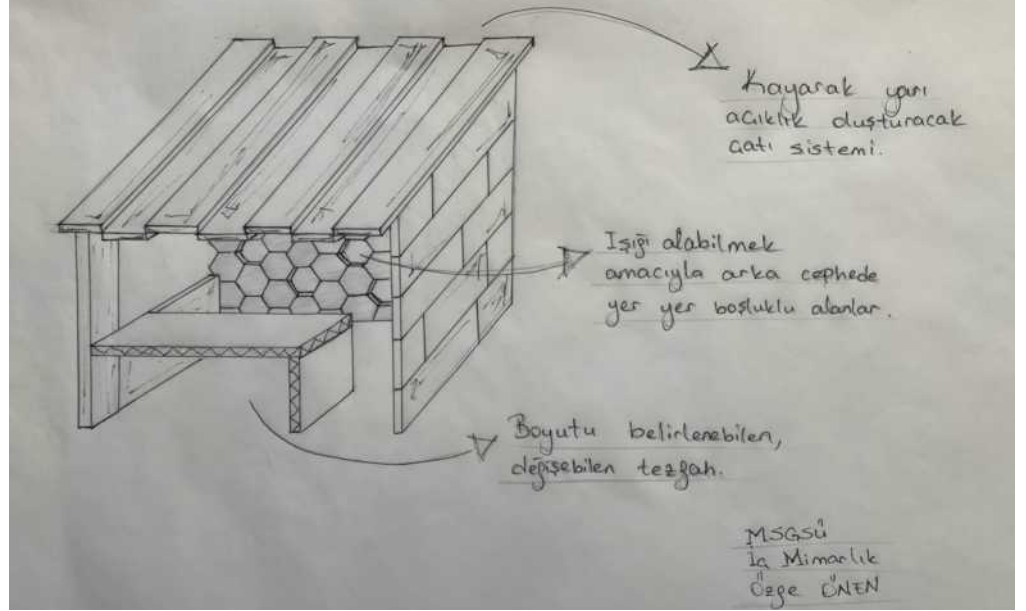 Kayarak yarı
açıklık oluşturacak
çatı sistemi.
Işığı alabilmek
amacıyla arka cephede
yer yer boşluklu alanlar.
Boyutu belirlenebilen,
değişebilen tezgah.
MSGSÜ
İç Mimarlık
Özge ÖNEN